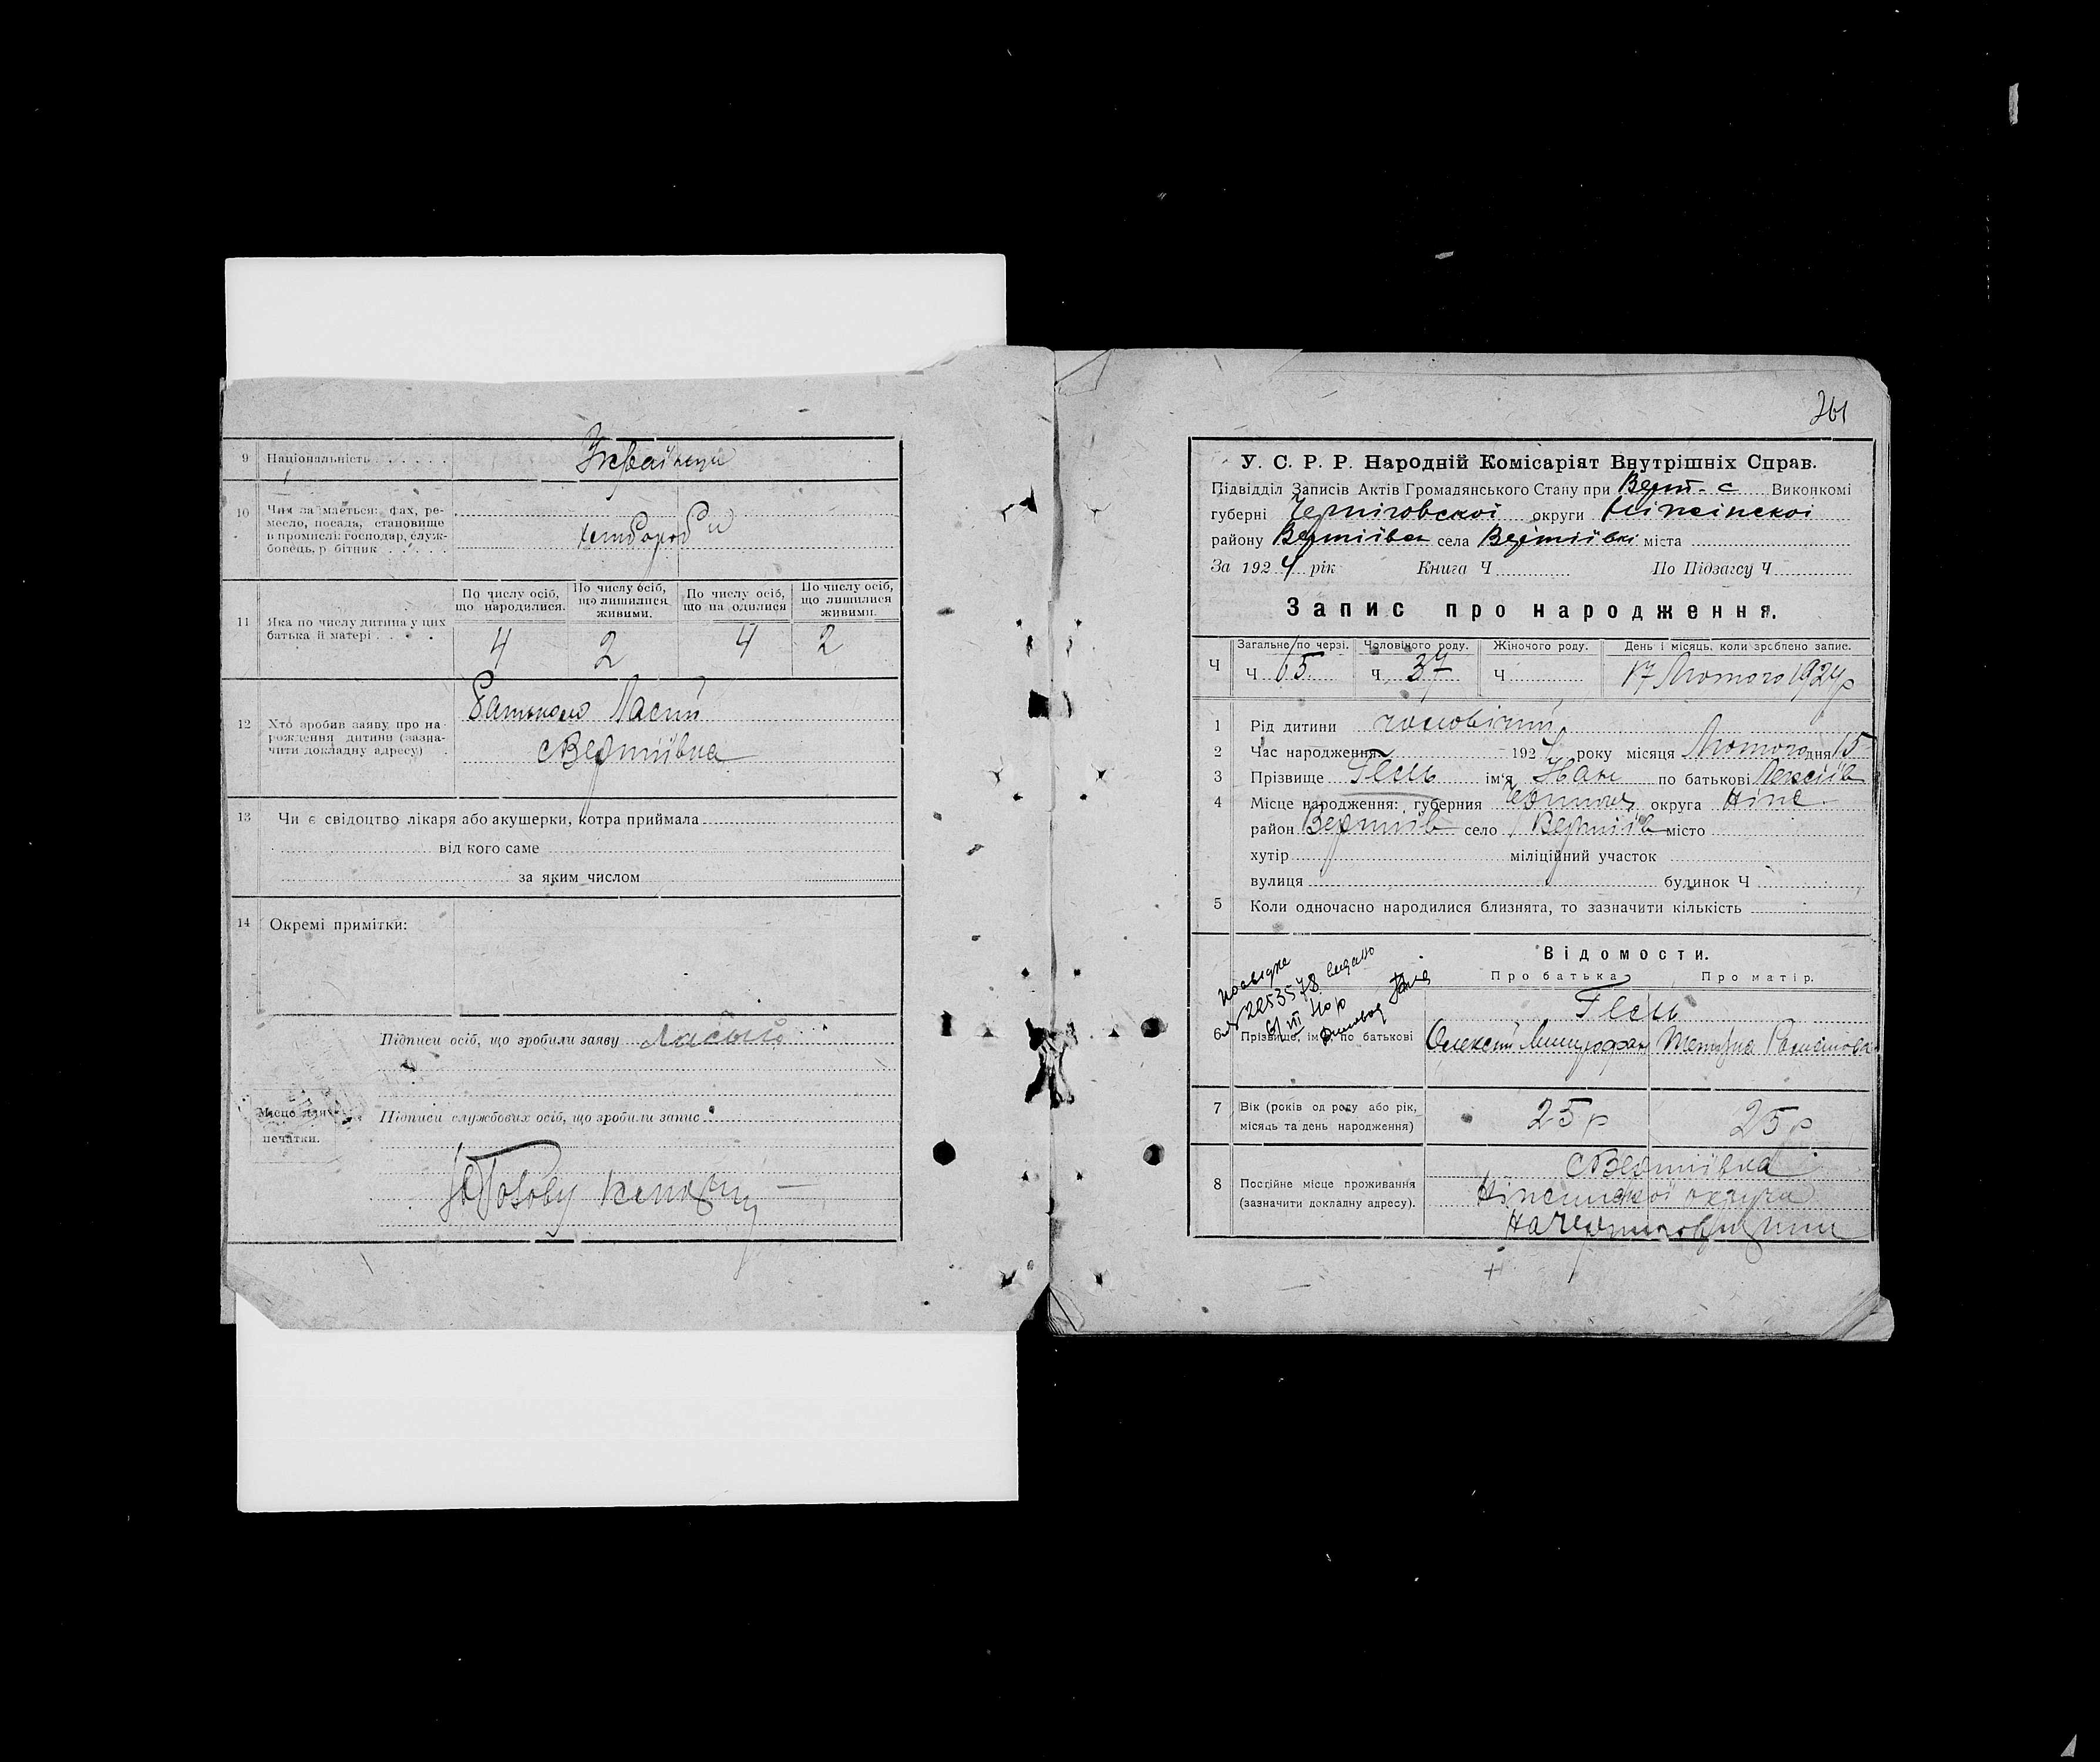 9 Національність . . . . . Українци
10 Чим займається: фах, ре-
месло, посада, становище
в промислі: господар, служ-
бовець, р бітник . . . . . хлібороби
11 Яка по числу дитина у цих
батька й матері . . . .
По числу осіб,
що народилися.
По числу осіб,
що лишилися
живими.
По числу осіб,
що на одилися
По числу осіб,
що лишилися
живими.
4 2 4 2
12 Хто зробив заяву про на-
рождення дитини (зазна-
чити докладну адресу) .
Батьком Ласий
с Вертіївка
13 Чи є свідоцтво лікаря або акушерки, котра приймала
від кого саме
за яким числом
14 Окремі примітки:
Підписи осіб, що зробили заяву Ласый
Підписи службових осіб, що зробили запис
Місце для
печатки.
261
У. С. Р. Р. Народній Комісаріят Внутрішніх Справ.
Підвідділ Записів Актів Громадянського Стану при Верт.-с Виконкомі
губерні Черніговскоі округи Ніжінскоі
району Вертіївск села Вертіївкі міста
За 1924 рік Книга Ч По Підзагсу Ч
Запис про народження.
Загальне по черзі. Чоловічого роду. Жіночого роду. День і місяць, коли зроблено запис.
Ч Ч 65 Ч 37 Ч 17 Лютого 1924 р
1 Рід дитини чоловічий
2 Час народження 1924 року місяця Лютого дня 15
3 Прізвище Гесь ім'я Іван по батькові Лексіїв
4 Місце народження: губерния Черниг округа Ніж.
район Вертіїв село Вертіїв місто
хутір міліційний участок
вулиця будинок Ч
5 Коли одночасно народилися близнята, то зазначити кількість
Відомости.
Про батька Про матір.
посвідка
№ 2253578 видано
6/VII 40 р
Гесь
6 Прізвище, ім'я, по батькові Олексій Митрофан Тетяна
7 Вік (років од роду або рік,
місяць та день народження) 25 р 25 р
8 Постійне місце проживання
(зазначити докладну адресу).
с Вертіївка
Ніжинської округи
на Черниговщини